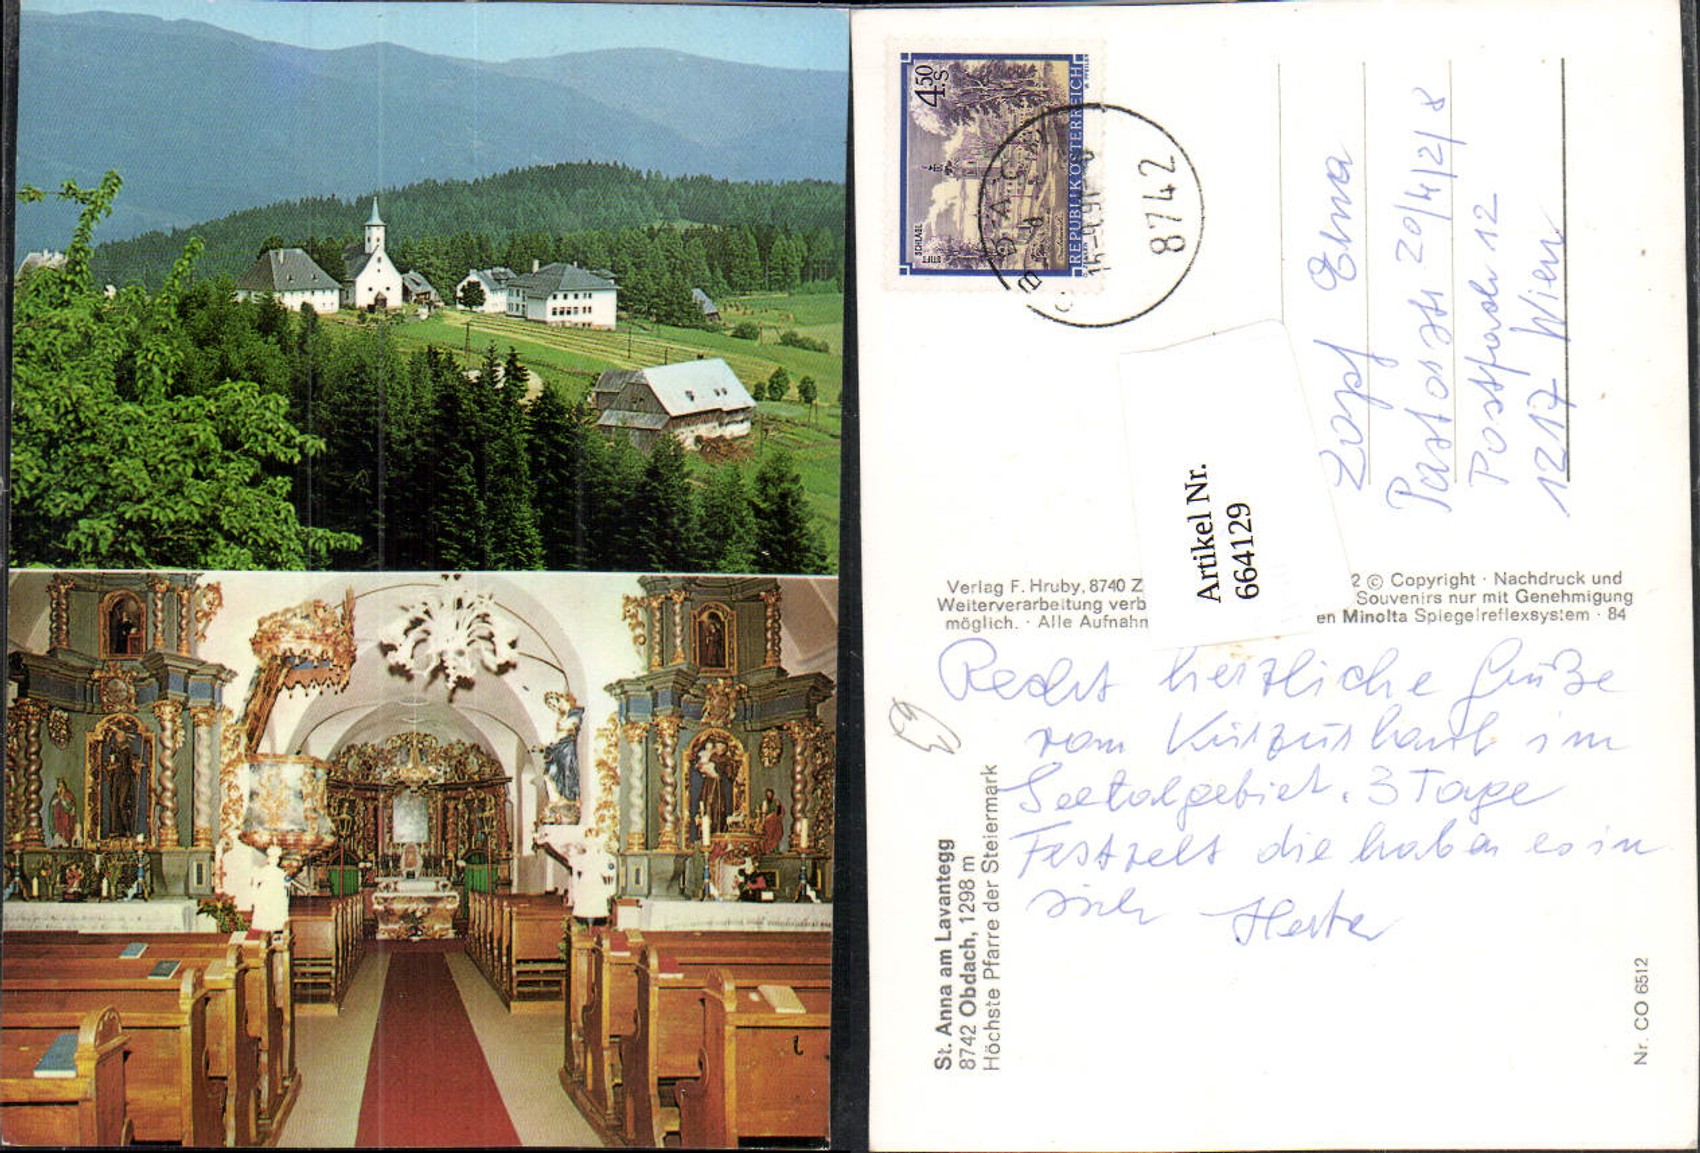 4.50
S
REPUBLIK ÖSTERREICH
STIFT SCHLÄGL
8742
Zopf Elma
Pastorstr 20/4/2/8
Postfach 12
1217 Wien
Artikel Nr.
664129
Verlag F. Hruby, 8740 Z
2 © Copyright · Nachdruck und
Weiterverarbeitung verb
Souvenirs nur mit Genehmigung
möglich. · Alle Aufnahm
en Minolta Spiegelreflexsystem · 84
Recht herzliche Grüße
vom Kurzurlaub im
Seetalgebiet. 3 Tage
Festzelt die haben es in
sich Herta
St. Anna am Lavantegg
8742 Obdach, 1298 m
Höchste Pfarre der Steiermark
Nr. CO 6512